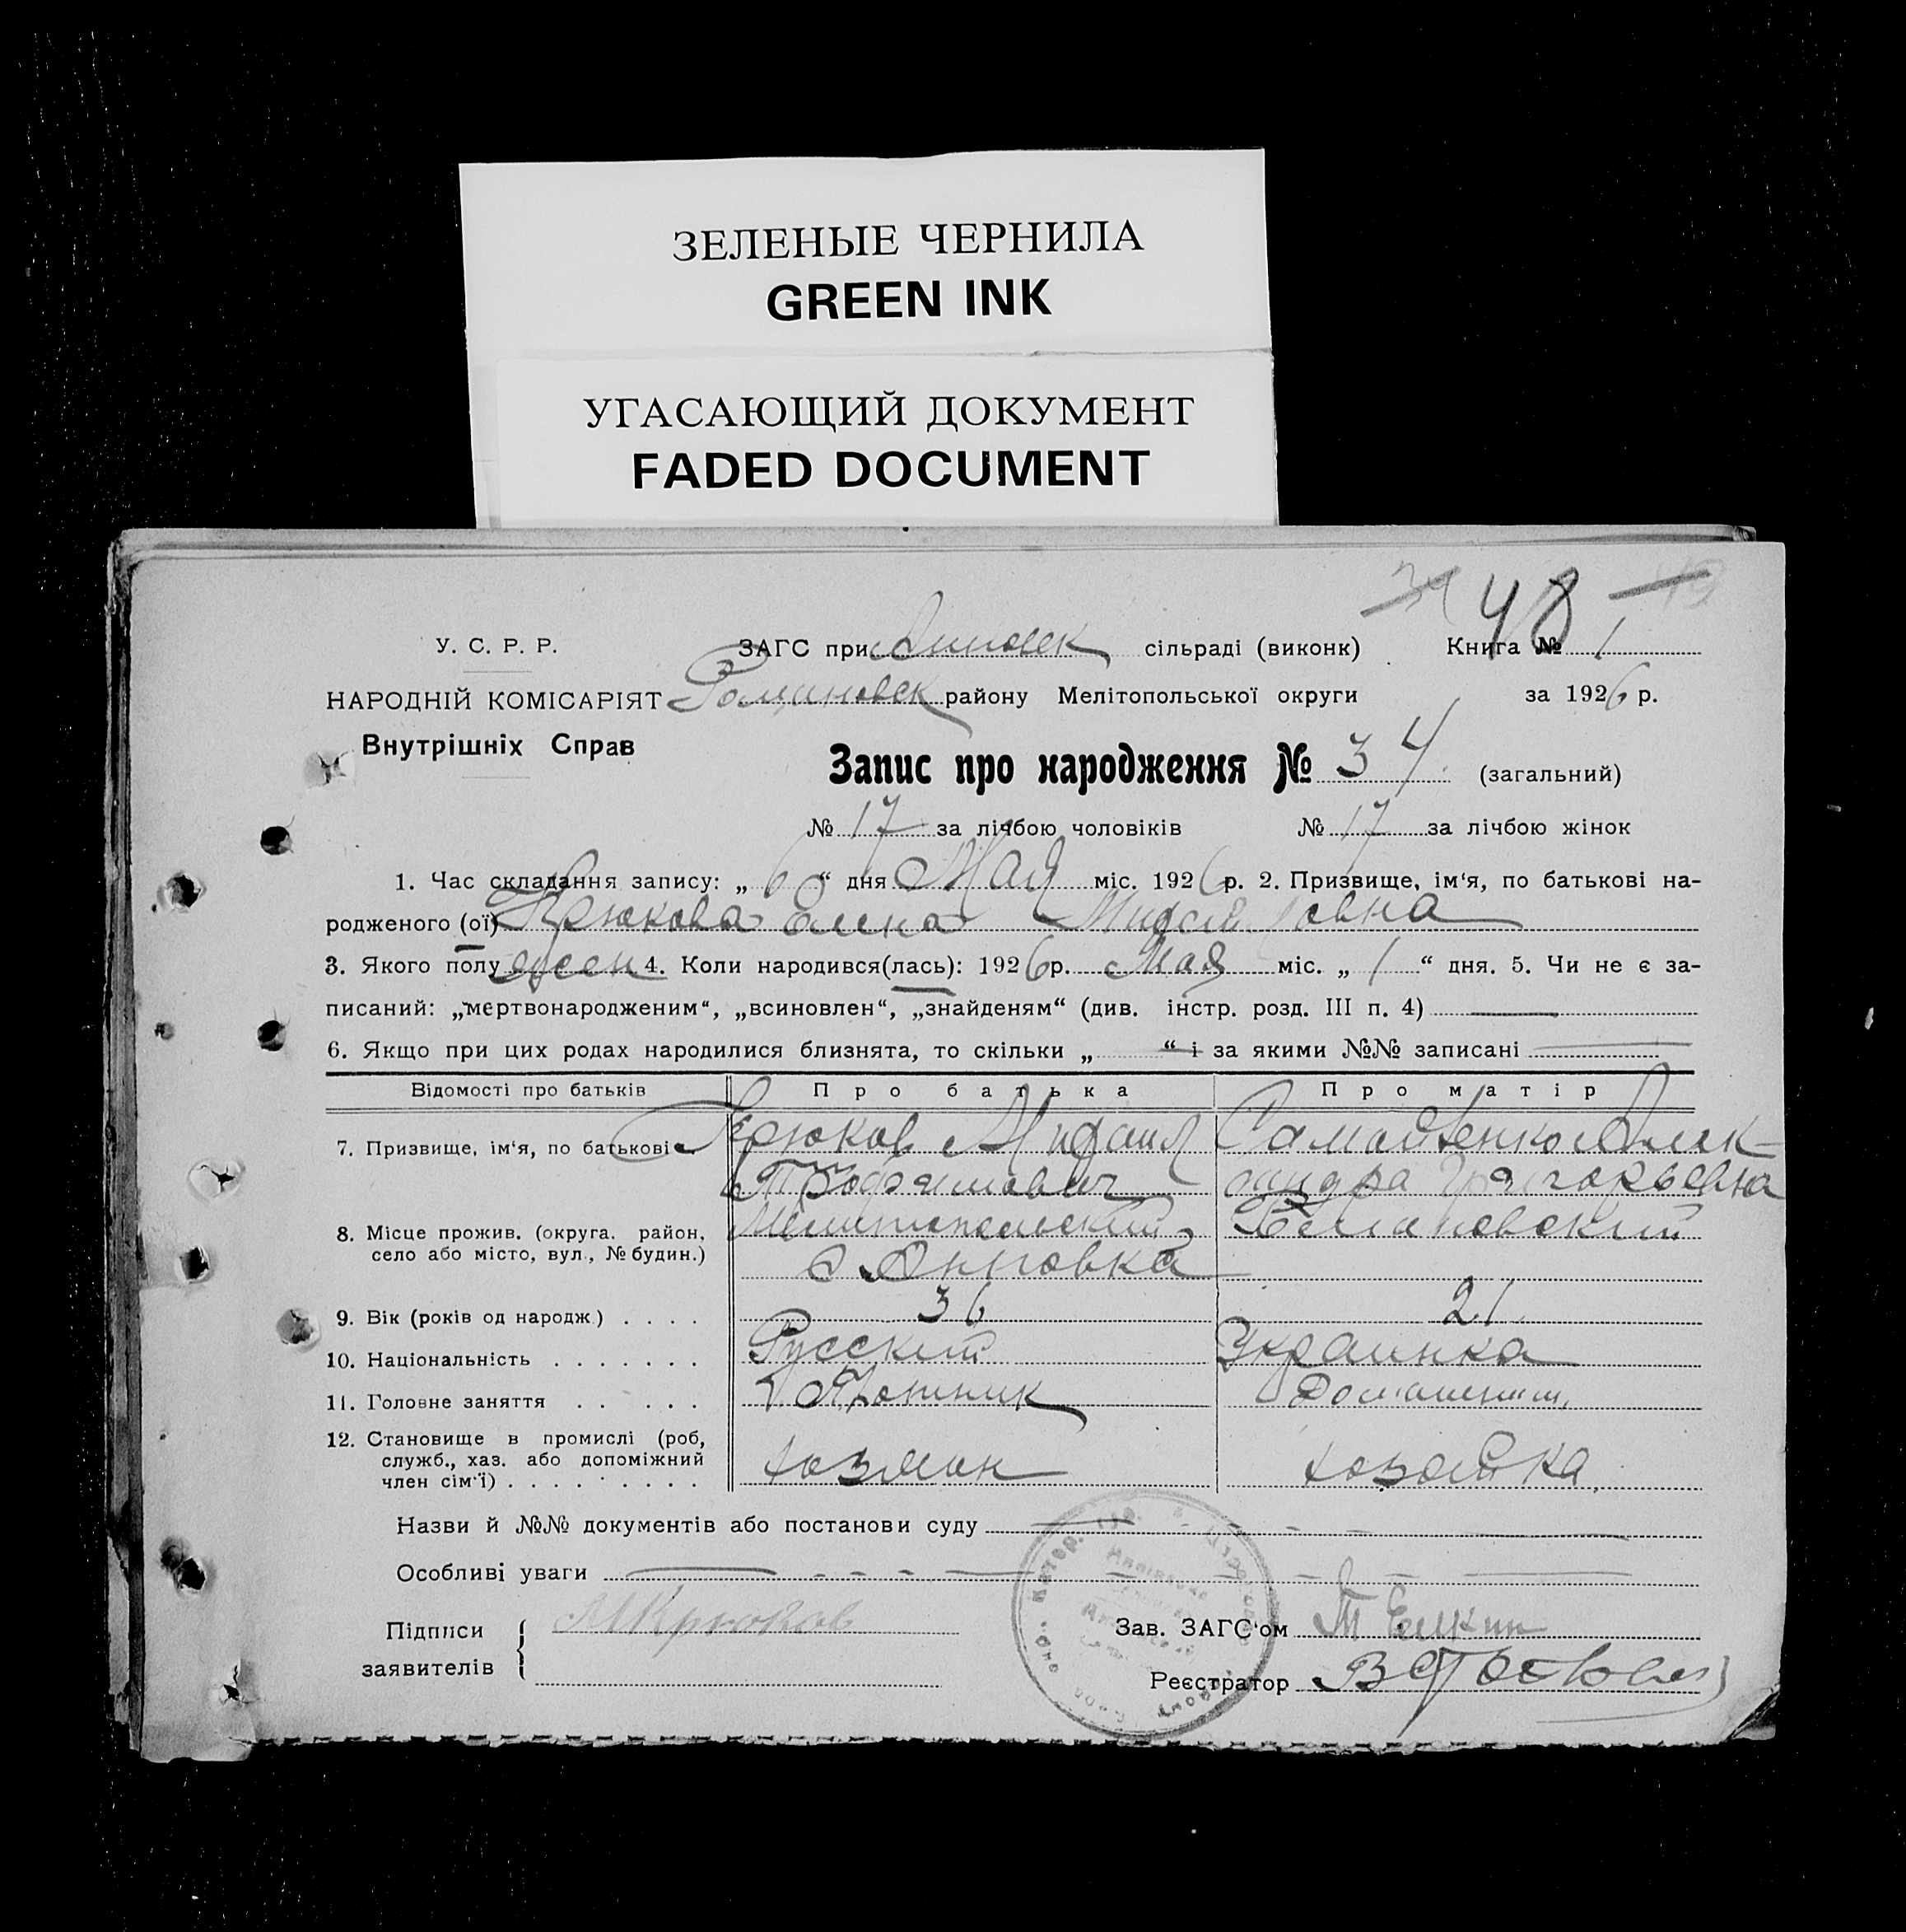 ЗЕЛЕНЫЕ ЧЕРНИЛА
GREEN INK
УГАСАЮЩИЙ ДОКУМЕНТ
FADED DOCUMENT
34 48
У. С. Р. Р. ЗАГС при сільраді (виконк) Книга № 1
НАРОДНІЙ КОМІСАРІЯТ Романовск району Мелітопольської округи за 1926 р.
Внутрішніх Справ
Запис про народження № 34 (загальний)
№ 17 за лічбою чоловіків № 17 за лічбою жінок
1. Час складання запису: „6“ дня Мая міс. 1926 р. 2. Призвище, ім‘я, по батькові на-
родженого (ої) Крюкова Елена Михайловна
3. Якого полу жен 4. Коли народився(лась): 1926 р. Мая міс. „1“ дня. 5. Чи не є за-
писаний: „мертвонародженим“, „всиновлен“, „знайденям“ (див. інстр. розд. III п. 4)
6. Якщо при цих родах народилися близнята, то скільки „ “ і за якими №№ записані
Відомості про батьків Про батька Про матір
7. Призвище, ім‘я, по батькові Крюков Михаил Самойленко Алек-
Трофимович сандра Григорьевна
8. Місце прожив. (округа. район, Мелитопольский Романовский
село або місто, вул., № будин.)
9. Вік (років од народж.) . . . . 36 21.
10. Національність . . . . . . . Русский Украинка
11. Головне заняття . . . . . Плотник Домашняя
12. Становище в промислі (роб,
служб., хаз. або допоміжний хозяин хозяйка
член сім‘ї) . . . . . . . .
Назви й №№ документів або постанови суду
Особливі уваги
Підписи МКрюков Зав. ЗАГС‘ом
заявителів Реєстратор